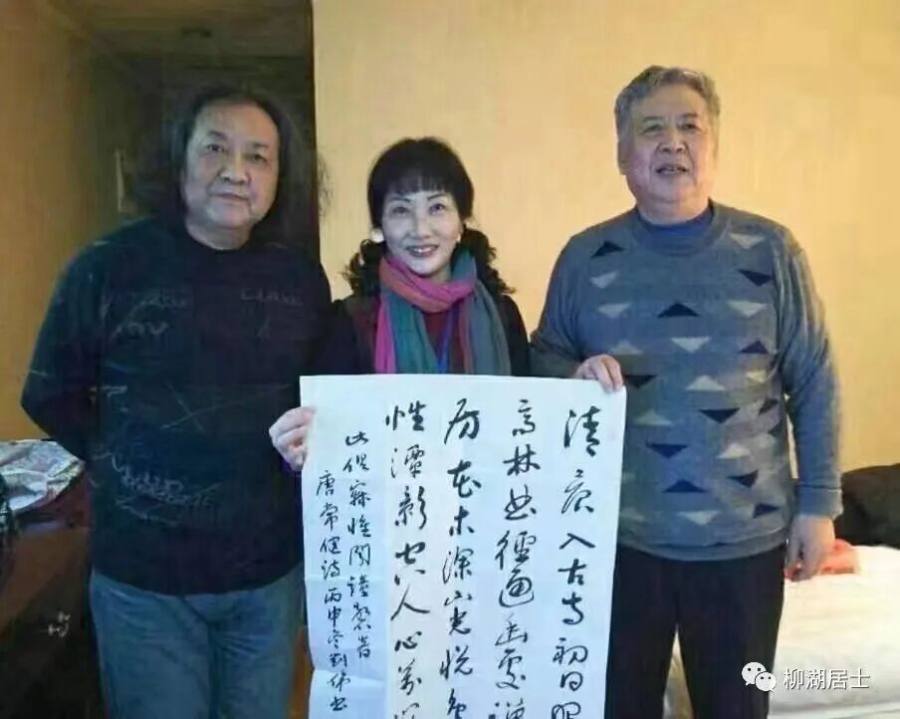 清晨入古寺初日照
高林曲徑通幽處禪
房花木深山光悦鸟
性潭影空人心萬
此俱寂惟闻鐘磬音
唐常健诗丙申冬刘伟书
柳湖居士